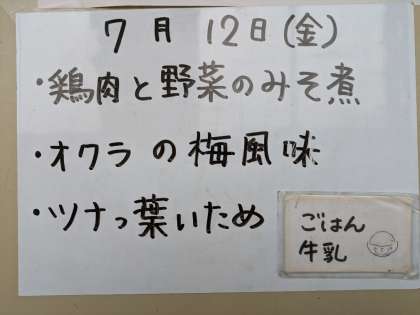 7月 12日(金)
・鶏肉と野菜のみそ煮
・オクラの梅風味
・ツナっ葉いため
ごはん
牛乳